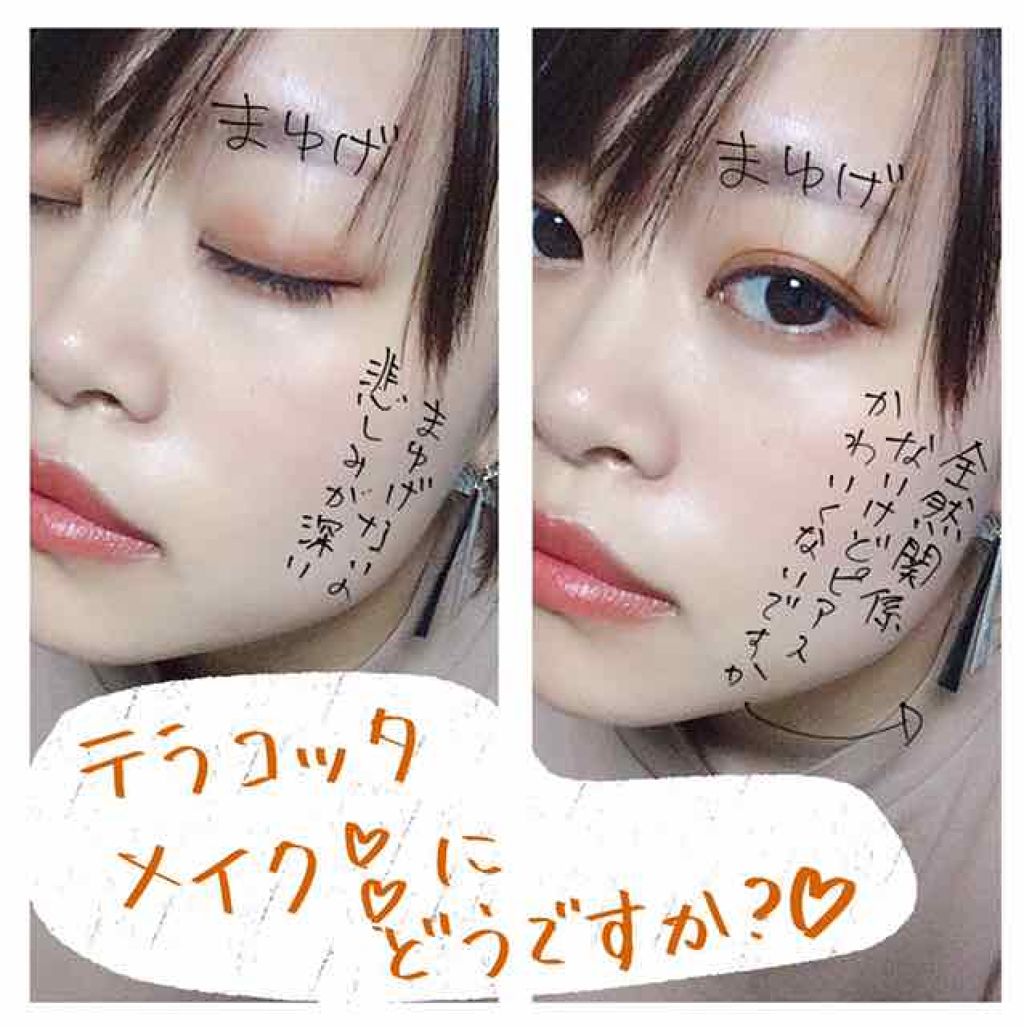 まゆげ
まゆげないの
悲しみが深い
まゆげ
全然関係
ないけどピアス
かわいくないですか
テラコッタ
メイク♡♡に
どうですか?♡